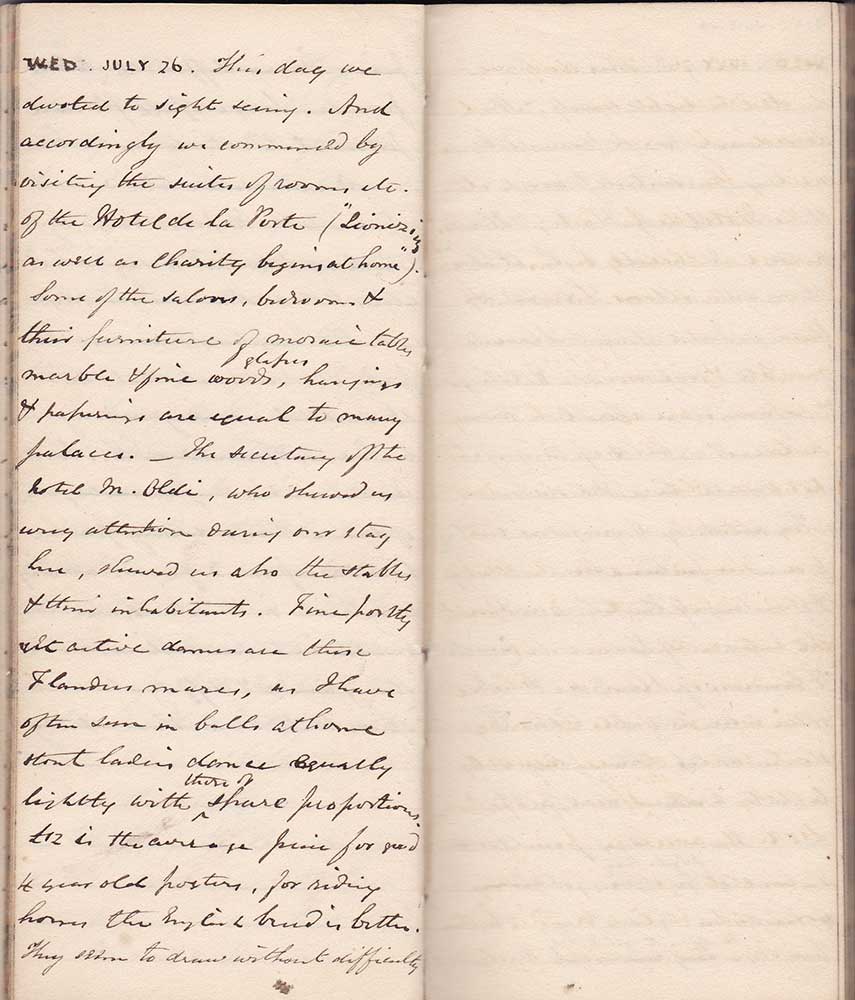 WED. JULY 26. This day we
devoted to sight seeing. And
accordingly we commenced by
visiting the suites of rooms etc.
of the Hotel de la Poste ("Lionizing
as well as Charity begins at home").
Some of the saloons, bedrooms &
their furniture of mosaic tables
glasses
marble & fine woods, hangings
& paperings are equal to many
palaces. — The secretary of the
hotel M. Oldi, who shewed us
every attention during our stay
here, shewed us also the stables
& their inhabitants. Fine portly
yet active dames are these
Flanders mares, as I have
often seen in balls at home
stout ladies dance equally
those of
lightly with ^ spare proportions.
£12 is the average price for good
4 year old posters, for riding
horses the English breed is better.
They seem to draw without difficulty